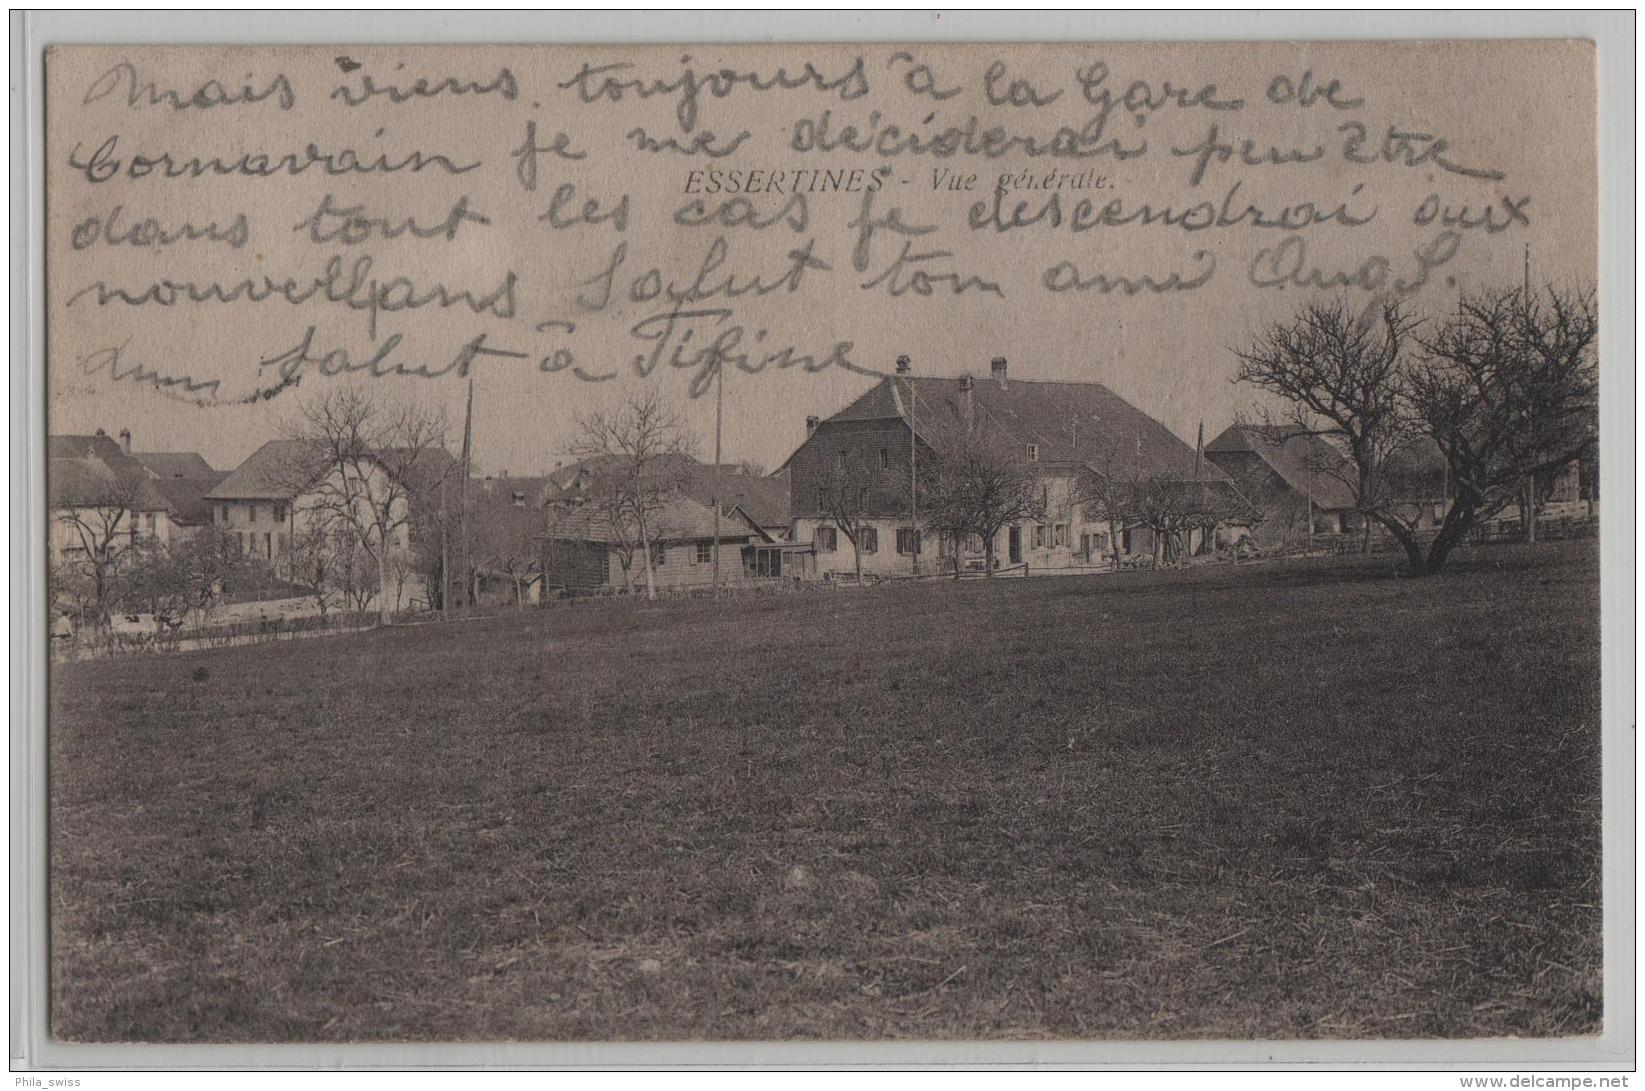 Mais viens toujours à la Gare de
Cornavain je me déciderai peu être
ESSERTINES - Vue générale.
dans tout les cas je descendrai aux
nouvellans Salut ton ami Aug S.
salut à Fifine
Phila_swiss
www.delcampe.net